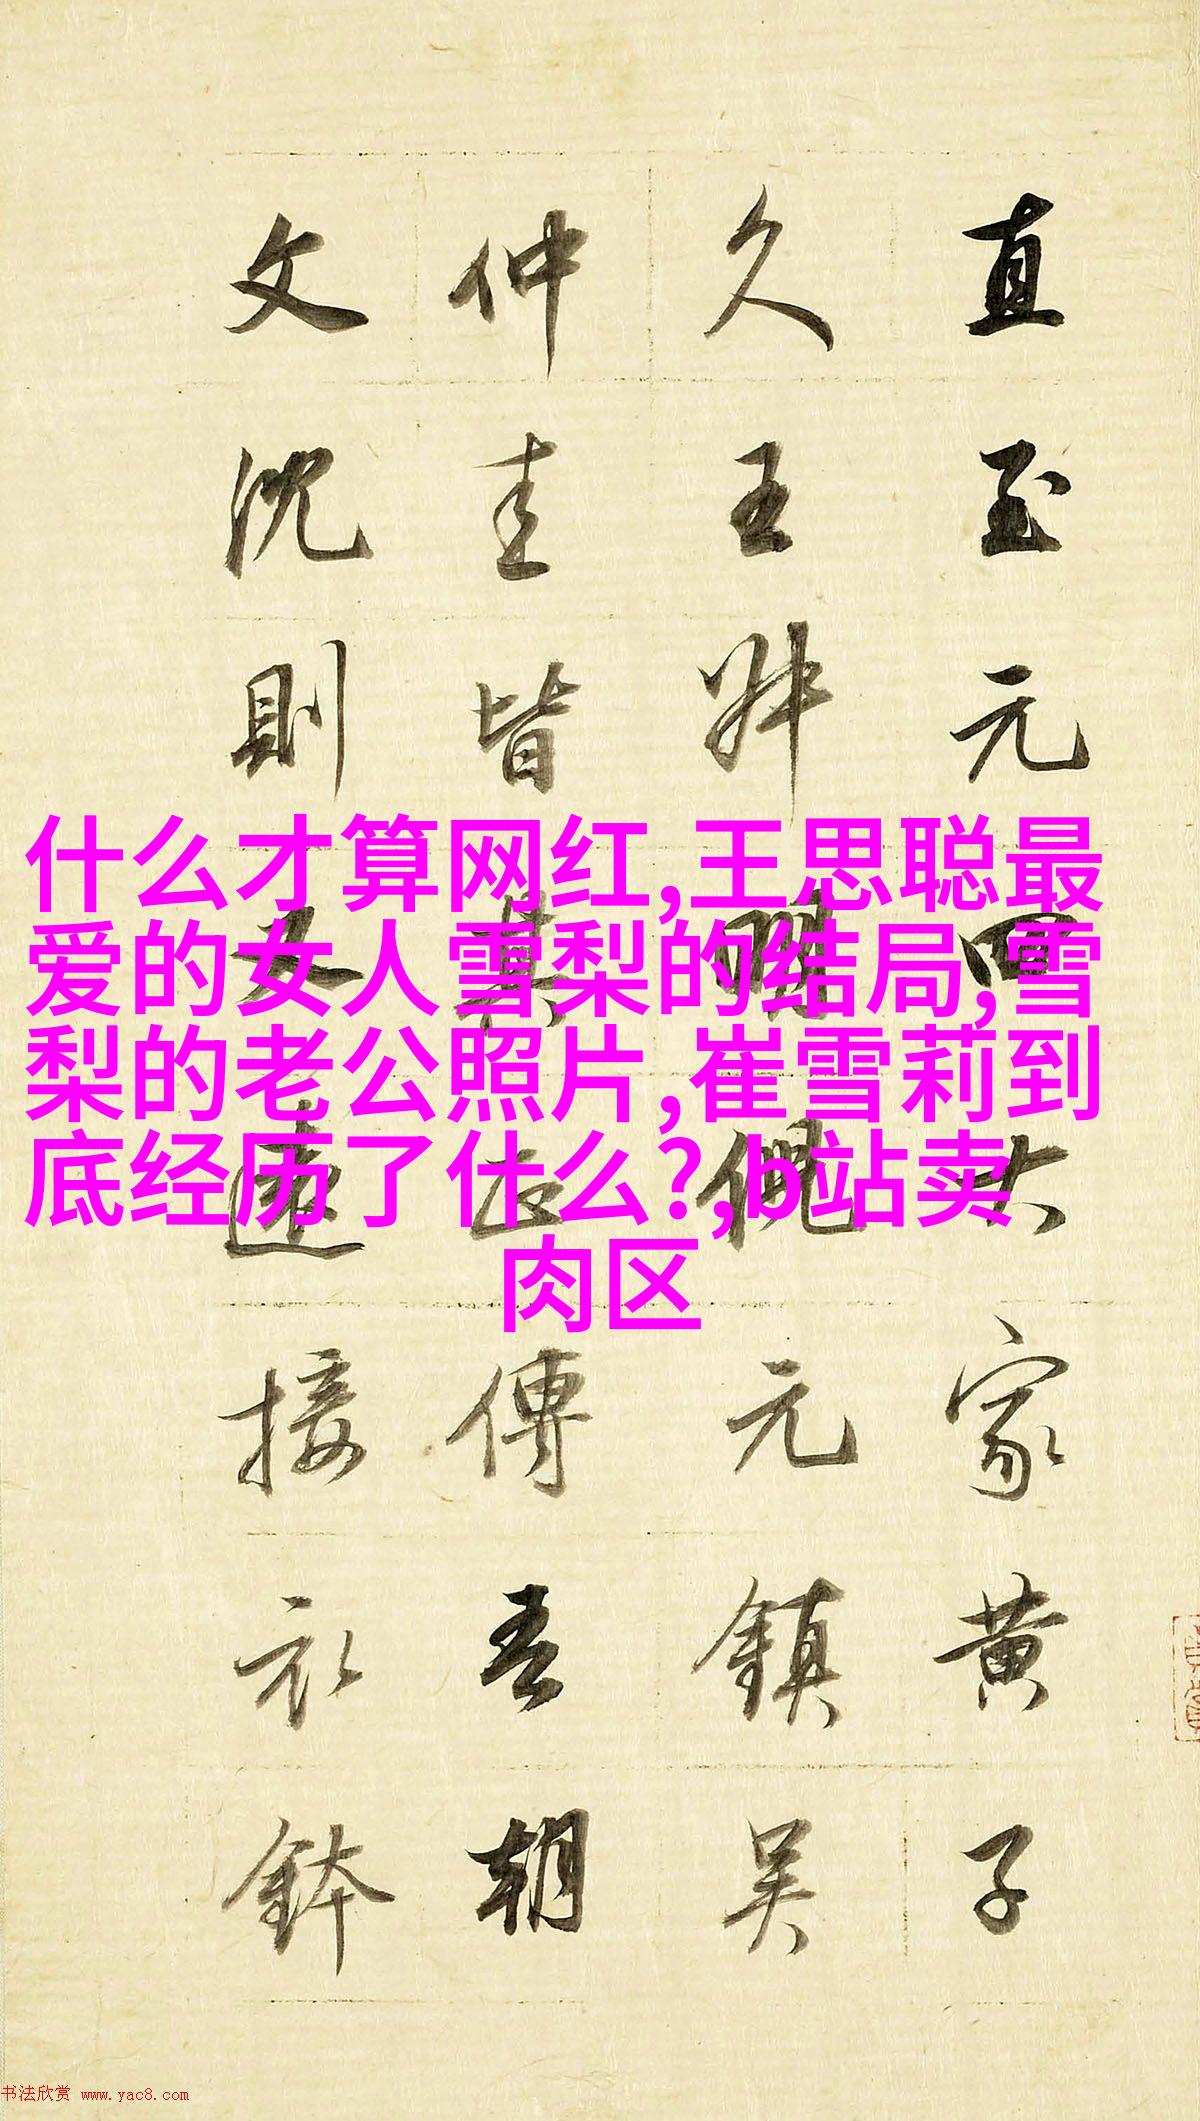 直至元四大家黃子
久王叔明倪元鎮吳
仲圭皆其正傳吾朝
文沈則又遠接衣鉢
什么才算网红,王思聪最
爱的女人雪梨的结局,雪
梨的老公照片,崔雪莉到
底经历了什么?,b站卖
肉区
书法欣赏 www.yac8.com